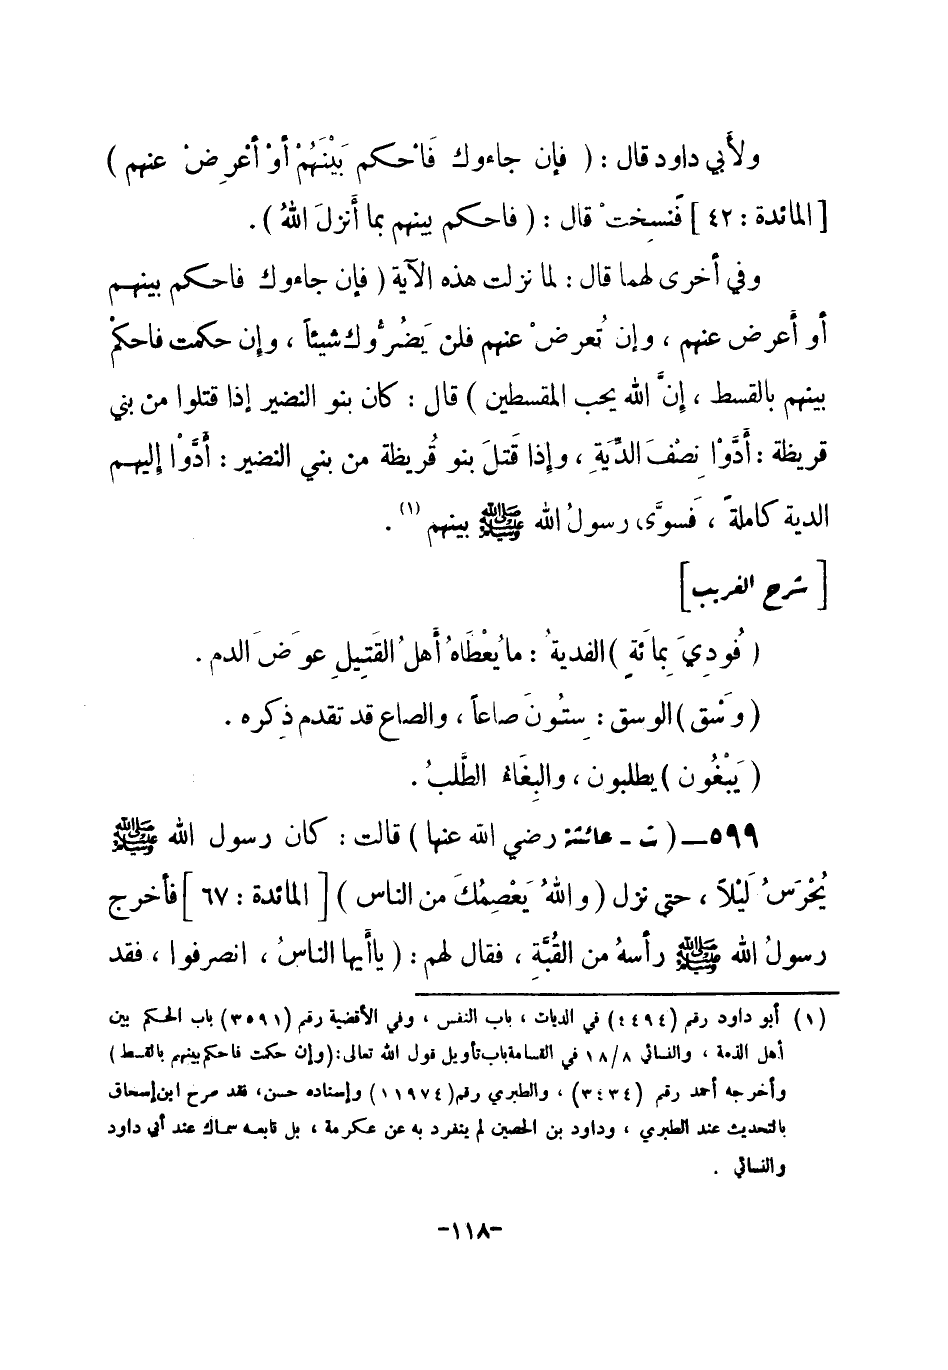 ولأبي داود قال : ( فإن جاءوك فَاحكم بَيْنَهُمْ أوْ أعْرِضْ عنهم )
[ المائدة : ٤٢ ] فَنسِختْ قال : ( فاحكم بينهم بما أَنزلَ اللهُ ) .
وفي أخرى لهما قال : لما نزلت هذه الآية ( فإن جاءوك فاحكم بينهم
أو أَعرض عنهم ، وإن تُعرضْ عنهم فلن يَضُرُّوك شيئاً ، وإن حكمت فاحكمْ
بينهم بالقسط ، إنَّ الله يحب المقسطين ) قال : كان بنو النضير إذا قتلوا من بني
قريظة : أَدَّوْا نِصْفَ الدِّيَةِ ، وإذا قَتلَ بنو قُريظة من بني النضير : أَدَّوْا إليهم
الدية كاملةً ، فَسوَّى رسولُ الله ﷺ بينهم (١) .
[ شرح الغريب ]
( فُودِيَ بِمائَةٍ ) الفدية : ما يُعْطَاهُ أَهلُ القَتِيلِ عِوَضَ الدم .
( وَسْق ) الوسق : سِتُونَ صاعاً ، والصاع قد تقدم ذِكره .
( يَبْغُون ) يطلبون ، والبِغَاءُ الطَّلبُ .
٥٩٩ـ ( ت ـ عائشة رضي الله عنها ) قالت : كان رسول الله ﷺ
يُحْرَسُ لَيْلاً ، حتى نزل ( واللهُ يَعْصِمُكَ من الناس ) [ المائدة : ٦٧ ] فأخرج
رسولُ الله ﷺ رأسهُ من القُبَّةِ ، فقال لهم : ( ياأيها الناسُ ، انصرفوا ، فقد
(١) أبو داود رقم (٤٤٩٤) في الديات ، باب النفس ، وفي الأقضية رقم (٣٥٩١) باب الحكم بين
أهل الذمة ، والنسائي ١٨/٨ في القسامة باب تأويل قول الله تعالى : ( وإن حكمت فاحكم بينهم بالقسط )
وأخرجه أحمد رقم (٣٤٣٤) ، والطبري رقم (١١٩٧٤) وإسناده حسن، فقد صرح ابن إسحاق
بالتحديث عند الطبري ، وداود بن الحصين لم ينفرد به عن عكرمة ، بل تابعه سماك عند أبي داود
والنسائي .
-١١٨-